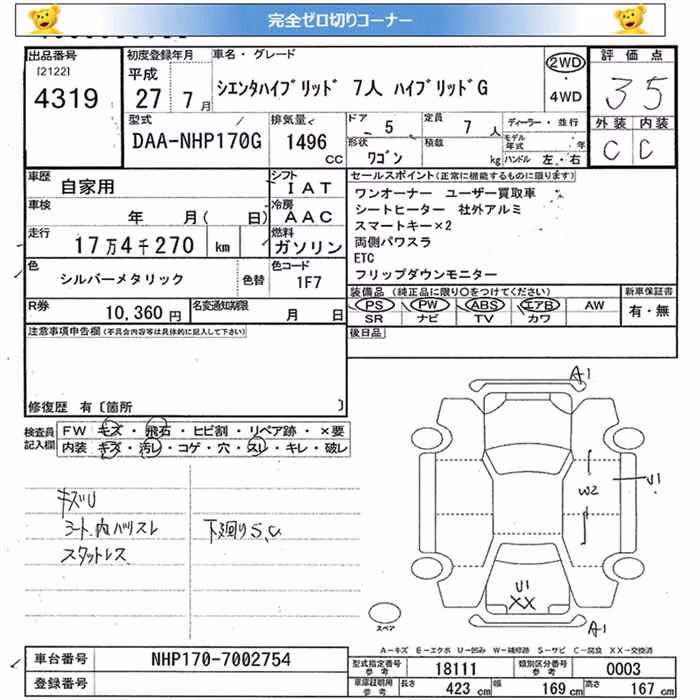 完全ゼロ切りコーナー
出品番号 初度登録年月 車名・グレード 評価点
[2122] 平成 2WD
4319 27 7月 シエンタハイブリッド 7人 ハイブリッドG 4WD 35
型式 排気量 ドア 5 定員 7人 ディーラー・並行 外装 内装
DAA-NHP170G 1496 cc 形状 ワゴン 積載 kg モデル年式 年 ハンドル 左・右 C C
車歴 自家用 シフト IAT セールスポイント(正常に機能するものに限ります)
車検 年 月( 日) 冷房 AAC ワンオーナー ユーザー買取車
シートヒーター 社外アルミ
スマートキー×2
走行 17万4千270 km 燃料 ガソリン 両側パワスラ
ETC
色 シルバーメタリック 色替 色コード 1F7 フリップダウンモニター
R券 10,360円 名変通知期限 月 日 装備品(純正品に限り○をつけてください) 新車保証書
PS PW ABS エアB AW 有・無
SR ナビ TV カワ
注意事項申告欄(不具合内容等は具体的に記入して下さい) 後日品
修復歴 有〔箇所 〕
検査員記入欄 FW キズ・飛石・ヒビ割・リペア跡・×要
内装 キズ・汚レ・コゲ・穴・スレ・キレ・破レ
キズU
シート、内ハリスレ 下廻りS、C
スタットレス
A1
W2
U1
U1
XX
スペア
A1
A-キズ E-エクボ U-凹み W-補修跡 S-サビ C-腐食 XX-交換済
車台番号 NHP170-7002754 型式指定番号 参考 18111 類別区分番号 参考 0003
登録番号 車庫証明用 参考 長さ 423 cm 幅 169 cm 高さ 167 cm